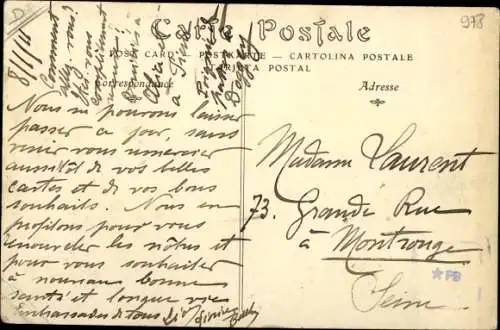 D
978
Carte Postale
POST CARD — POSTKARTE — CARTOLINA POSTALE
TARJETA POSTAL
Correspondance
Adresse
8/1/11
Comment
allez vous?
Nous ne pouvons laisser
passer ce jour, sans
venir vous remercier
aussitôt de vos belles
cartes et de vos bons
souhaits. Nous en
profitons pour vous
renouveler les nôtres et
pour vous souhaiter
à nouveau bonne
santé et longue vie
Embrassades de tous
Madame Laurent
73. Grande Rue
à Montrouge
Seine
*PB